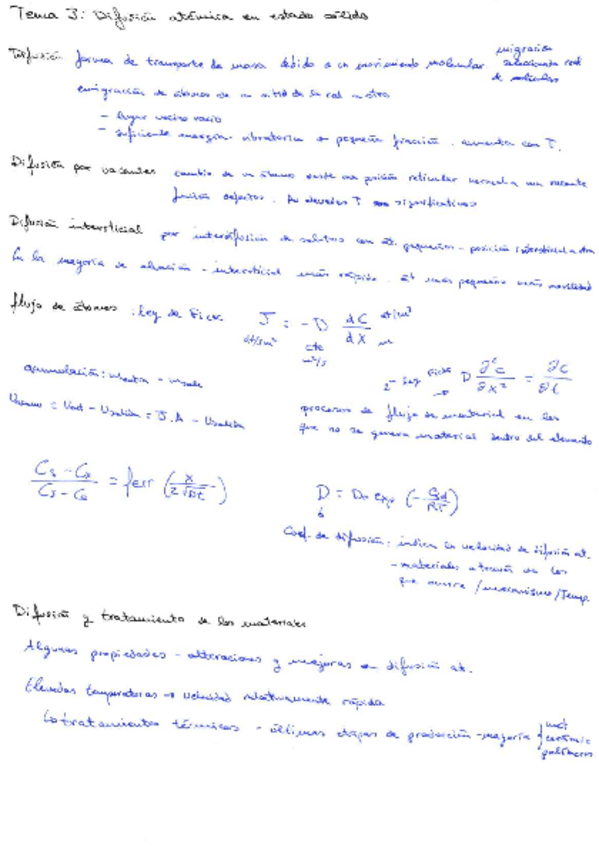 Tema 3: Difusión atómica en estado sólido
Difusión forma de transporte de masa debido a un movimiento molecular
migración
de moléculas
emigración de átomos de un sitio de la red a otro
- lugar vecino vacío
- suficiente energía vibratoria → pequeña fracción, aumenta con T.
Difusión por vacantes cambio de un átomo desde una posición reticular normal a una vacante
función defectos. A elevadas T significativos
Difusión intersticial por interdifusión de solutos con át. pequeños - posición intersticial a otra
En la mayoría de aleación - intersticial más rápida, át más pequeños más movilidad
flujo de átomos : Ley de Fick
J = -D dC/dx
at/m³
m
at/sm²
cte
m²/s
acumulación: mentra - msale
2ª Ley Fick → D ∂²C/∂x² = ∂C/∂t
procesos de flujo de material en los
que no se genera material dentro del elemento
(Cs - Cx)/(Cs - C0) = ferr (x/2√Dt)
D = D0 exp (- Qd/RT)
Coef. de difusión: indica la velocidad de difusión at.
- materiales a través de los
que ocurre / mecanismo / Temp.
Difusión y tratamiento de los materiales
Algunas propiedades - alteraciones y mejoras en difusión at.
Elevadas temperaturas → velocidad relativamente rápida
↳ tratamientos térmicos - últimas etapas de producción - mayoría
met
cerámic
polímeros